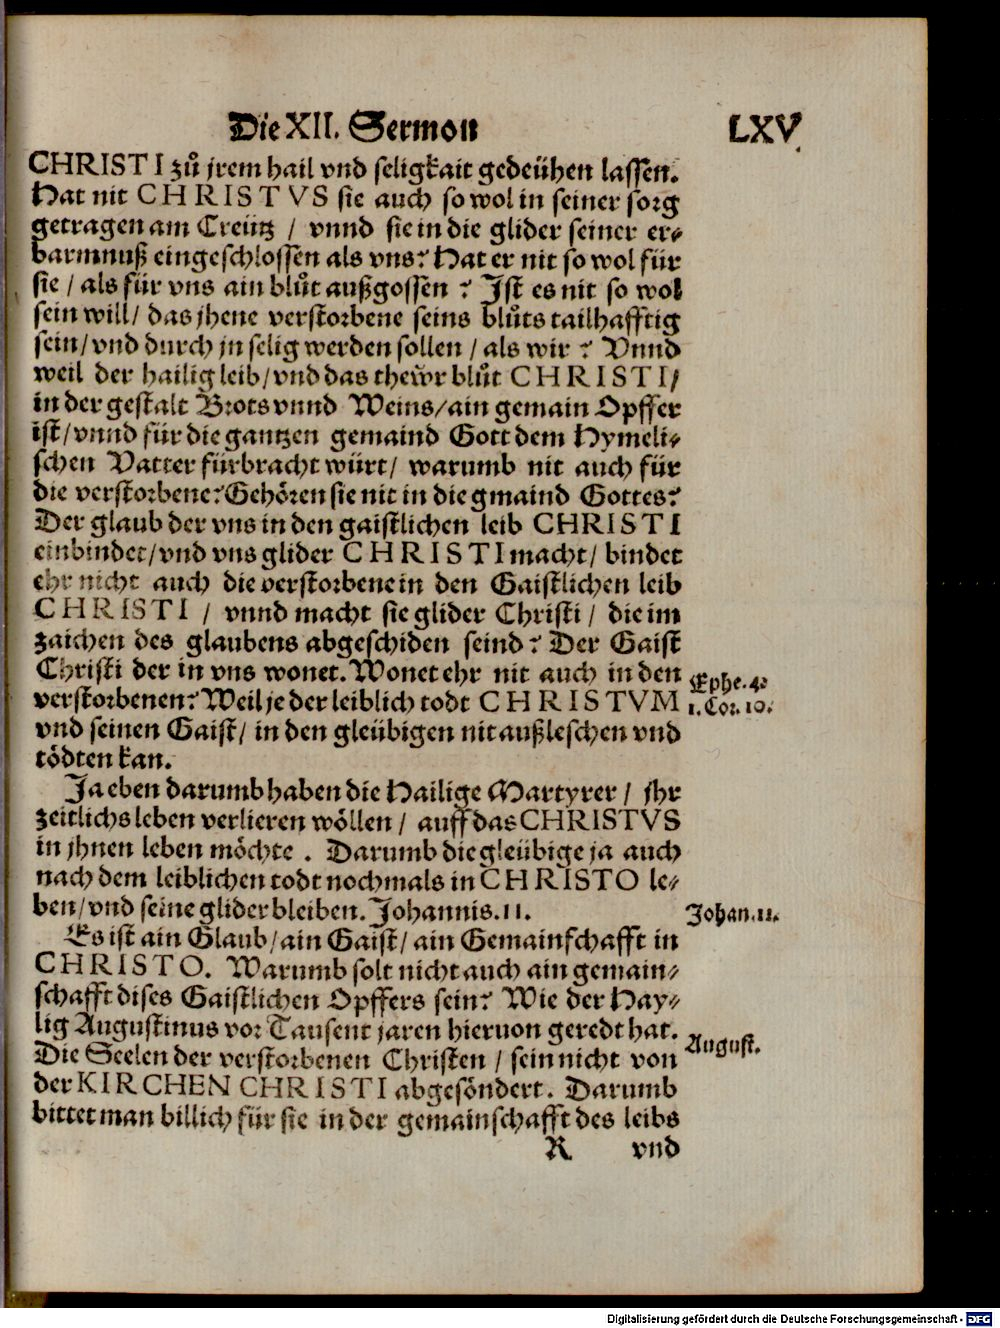 Die XII. Sermon LXV.
CHRISTI zů jrem hail vnd seligkait gedeühen lassen.
Hat nit CHRISTVS sie auch so wol in seiner sorg
getragen am Creütz / vnnd sie in die glider seiner er⸗
barmnuß eingeschlossen als vns? Hat er nit so wol für
sie / als für vns ain blůt außgossen? Ist es nit so wol
sein will / das jhene verstorbene seins blůts tailhafftig
sein / vnd durch jn selig werden sollen / als wir? Vnnd
weil der hailig leib / vnd das thewr blůt CHRISTI /
in der gestalt Brots vnnd Weins / ain gemain Opffer
ist / vnnd für die gantzen gemaind Gott dem Hymeli⸗
schen Vatter fürbracht würt / warumb nit auch für
die verstorbene? Gehören sie nit in die gmaind Gottes?
Der glaub der vns in den gaistlichen leib CHRISTI
einbindet / vnd vns glider CHRISTI macht / bindet
ehr nicht auch die verstorbene in den Gaistlichen leib
CHRISTI / vnnd macht sie glider Christi / die im
zaichen des glaubens abgeschiden seind? Der Gaist
Christi der in vns wonet. Wonet ehr nit auch in den
verstorbenen? Weil je der leiblich todt CHRISTVM
vnd seinen Gaist / in den gleübigen nit außleschen vnd
tödten kan.
Ephe. 4.
1. Cor. 10.
Ja eben darumb haben die Hailige Martyrer / jhr
zeitlichs leben verlieren wöllen / auff das CHRISTVS
in jhnen leben möchte. Darumb die gleübige ja auch
nach dem leiblichen todt nochmals in CHRISTO le⸗
ben / vnd seine glider bleiben. Johannis. 11.
Johan. 11.
Es ist ain Glaub / ain Gaist / ain Gemainschafft in
CHRISTO. Warumb solt nicht auch ain gemain⸗
schafft dises Gaistlichen Opffers sein? Wie der Hay⸗
lig Augustinus vor Tausent jaren hieruon geredt hat.
Die Seelen der verstorbenen Christen / sein nicht von
der KIRCHEN CHRISTI abgesöndert. Darumb
bittet man billich für sie in der gemainschafft des leibs
August.
R vnd
Digitalisierung gefördert durch die Deutsche Forschungsgemeinschaft - DFG